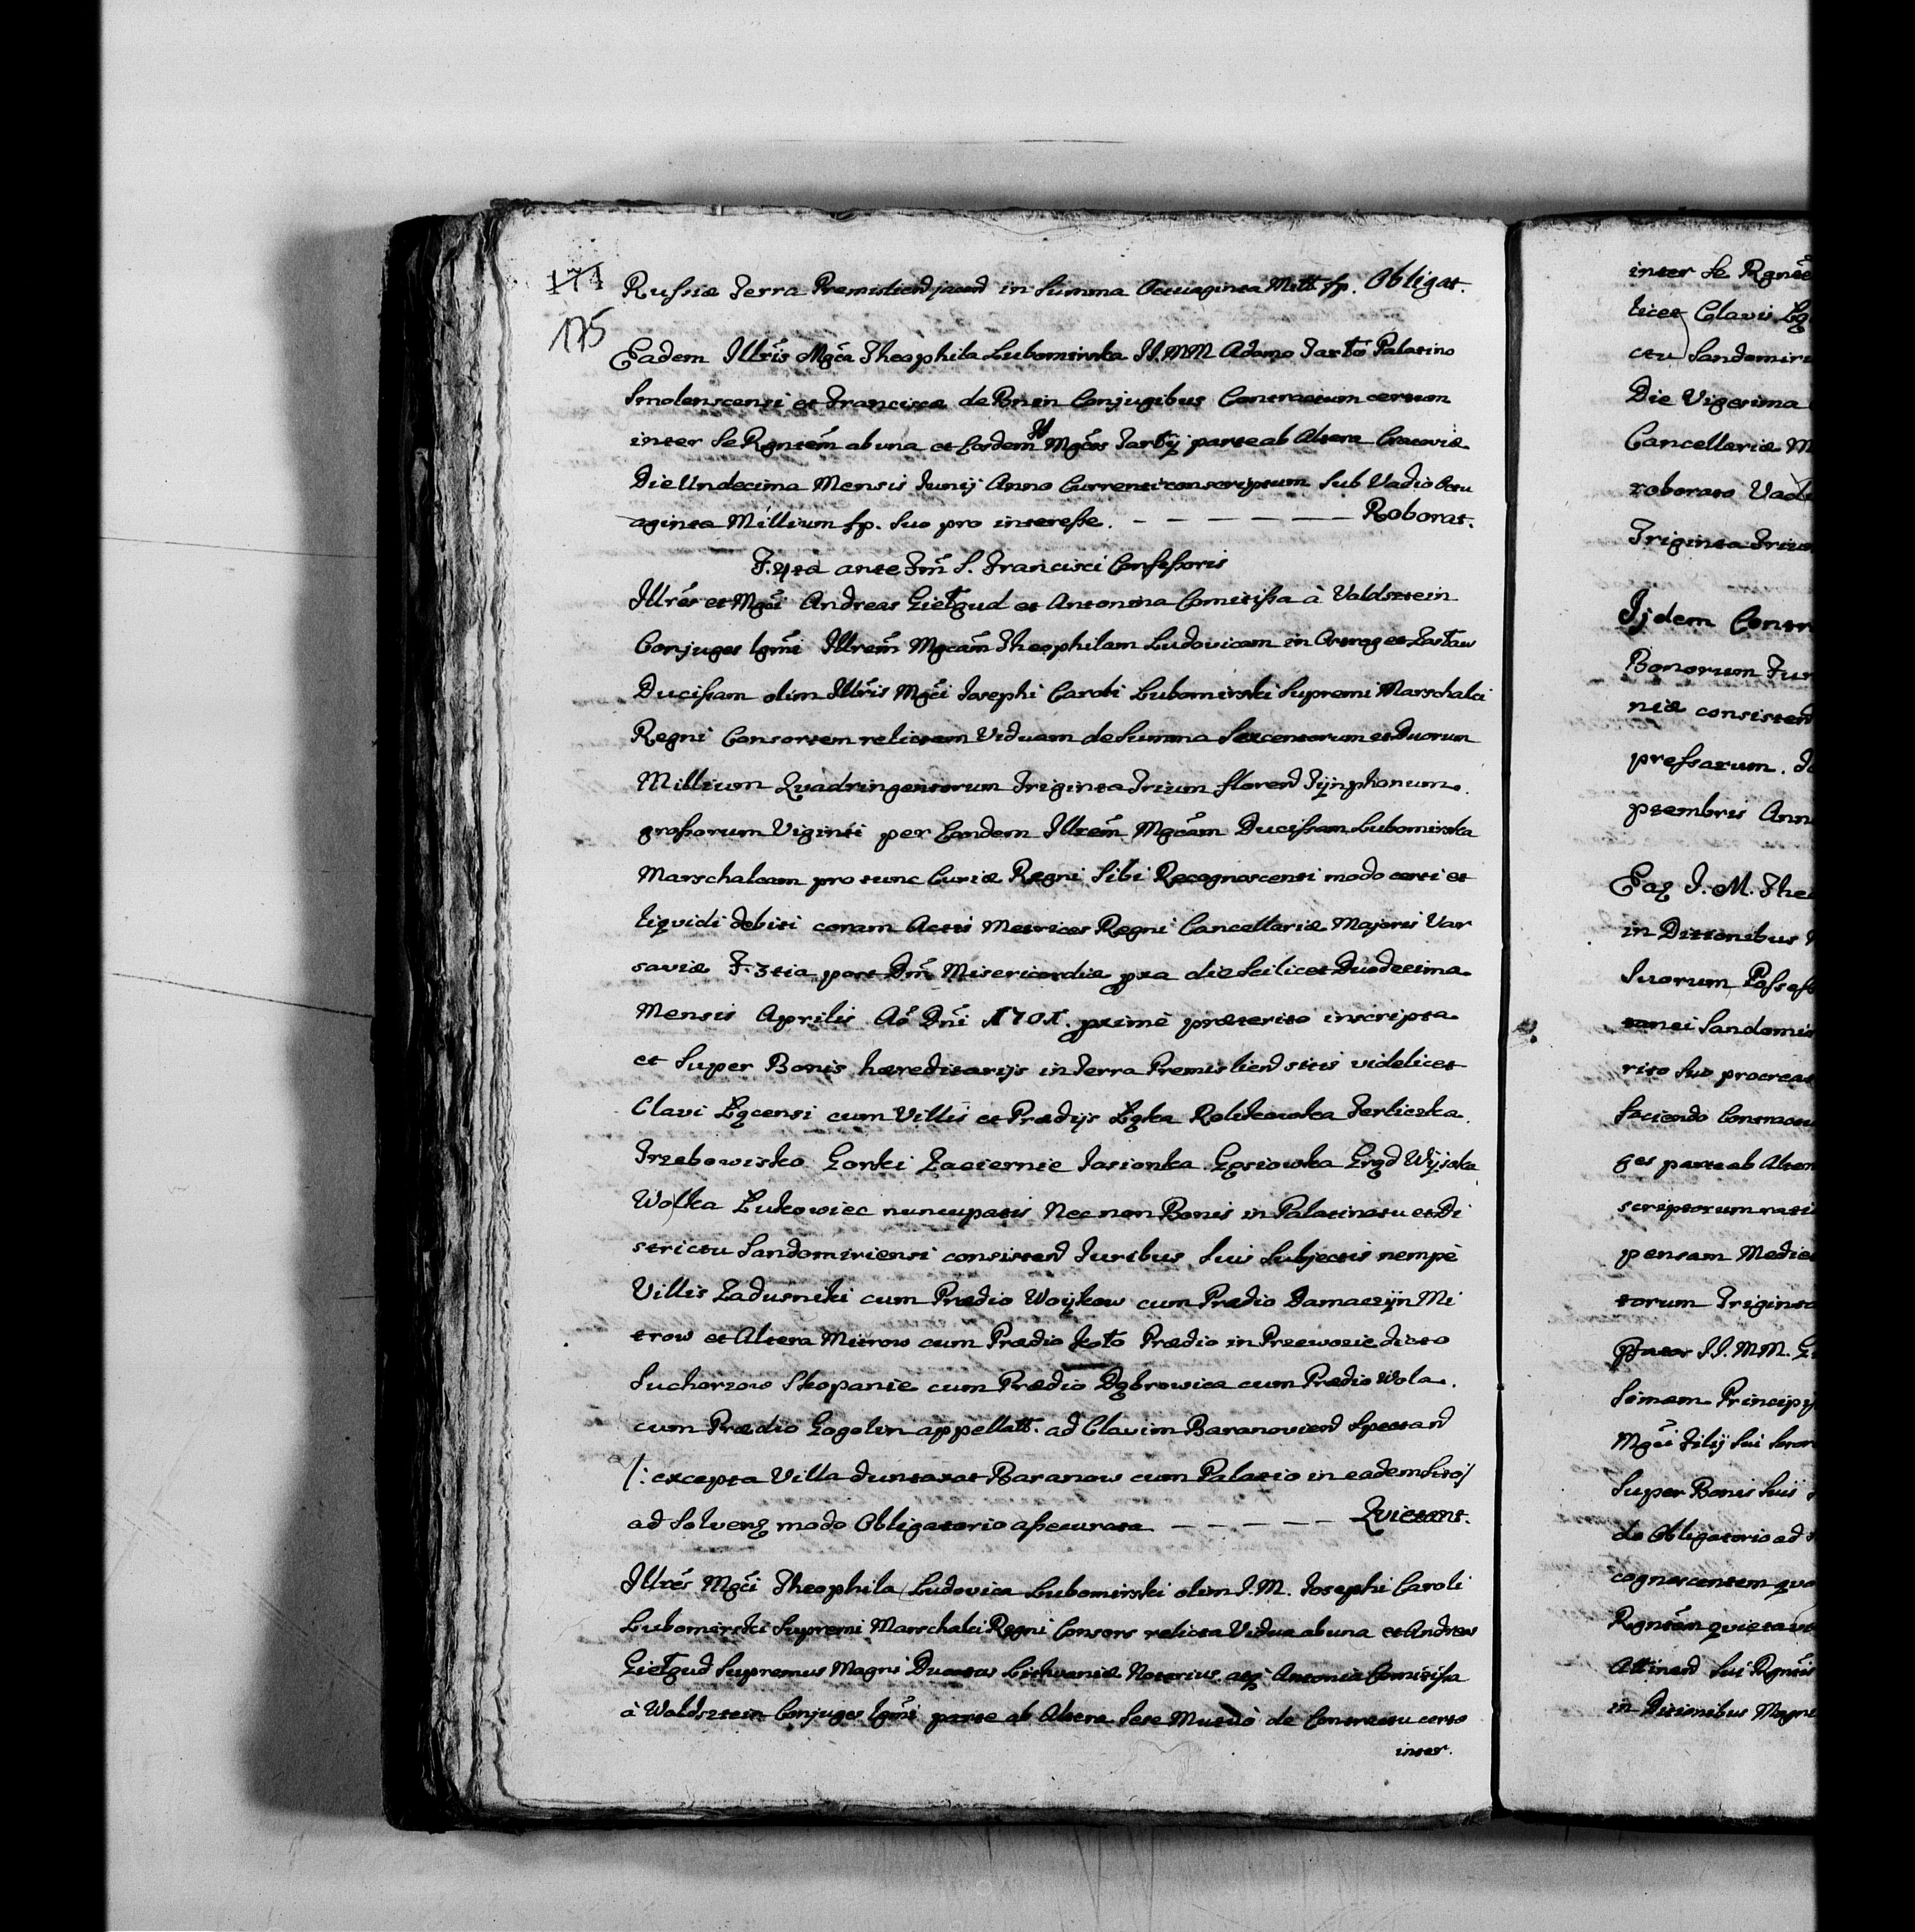 174
175
Russiæ Terra Premisliend jacend in Summa Octuaginta Mill fp. Obligat.
Eadem Illris Mgca Theophila Lubomirska II. MM. Adamo Tarło Palatino
Smolenscensi et Franciscæ de Bnin Conjugibus Contractum certum
inter Se Rgntem ab una et Eosdem II Mgcos Tarły parte ab Altera Cracoviæ
Die Undecima Mensis Junij Anno Currenti conscriptum Sub Vadio Octu
aginta Millium fp. Suo pro interesse. – – – – – – Roborat.
F. 4ta ante Fm S. Francisci Confessoris
Illres et Mgci Andreas Giełgud et Antonina Comitissa à Valdsztein
Conjuges lgmi Illrem Mgcam Theophilam Ludovicam in Ostrog et Zasław
Ducissam olim Illris Mgci Josephi Caroli Lubomirski Supremi Marschalci
Regni Consortem relictam Viduam de Summa Sexcentorum et Duorum
Millium Quadringentorum Triginta Trium florend Tÿnphonum
grossorum Viginti per Eandem Illrem Mgcam Ducissam Lubomirska
Marschalcam pro tunc Curiæ Regni Sibi Recognoscenti modo certi et
liquidi debiti coram Actis Metrices Regni Cancellariæ Majoris Var
saviæ F. 3tia post Dm Misericordiæ pxa die Scilicet Duodecima
Mensis Aprilis Ao Dni 1701. ximè præterito inscripta
et Super Bonis hæreditarijs in Terra Premisliend sitis videlicet
Clavi Łącensi cum Villis et Prædijs Łąka Rolikowka Terliczka
Trzebowisko Gorki Zaciernie Jasionka Gęsiowka Grąd Wÿsoka
Wolka Łukowiec nuncupatis Nec non Bonis in Palatinatu et Di
strictu Sandomiriensi consistend Juribus Suis Subjectis nempè
Villis Zaduszniki cum Prædio Woÿkow cum Prædio Damaczÿn Mi
trow et Altera Mitrow cum Prædio Prædio in Przewozie dicto
Suchorzow Skopanie cum Prædio Dąbrowica cum Prædio Wola
cum Prædio Gogolin appellatt. ad Clavim Baranoviend Spectand
/: excepta Villa duntaxat Baranow cum Palatio in eadem Sito/
ad Solvend modo Obligatorio assecurata – – – – – Quietant.
Illres Mgci Theophila Ludovica Lubomirski olim I. M. Josephi Caroli
Lubomirski Supremi Marschalci Regni Consors relicta Vidua ab una et Andreas
Giełgud Supremus Magni Ducatus Lithvaniæ Notarius atq Antonia Comitissa
à Waldsztein Conjuges lgmi parte ab Altera Sese Mutuò de Contractu certo
inter.
inter Se Rgnte
licet Clavis Łą
ctu Sandomiri
Die Vigesima
Cancellariæ M
roborato Vad
Triginta Trium
Ijdem Contr
Bonorum Jur
niæ consistend
pressarum.
ptembris Ann
Eaq I. M. The
in Dittionibus
Suorum Possess
tanei Sandomi
rito Suo procreat
faciendo Contractu
ges parte ab Alter
scriptorum rati
pensam Mediet
torum Triginta
II. MM. Gi
Simam Principÿ
Mgci Filij Sui
Super Bonis Suis
do Obligatorio ad
cognoscentem quo
Rgntem quietav
Attinend Sui Rgntis
in Ditionibus Magni